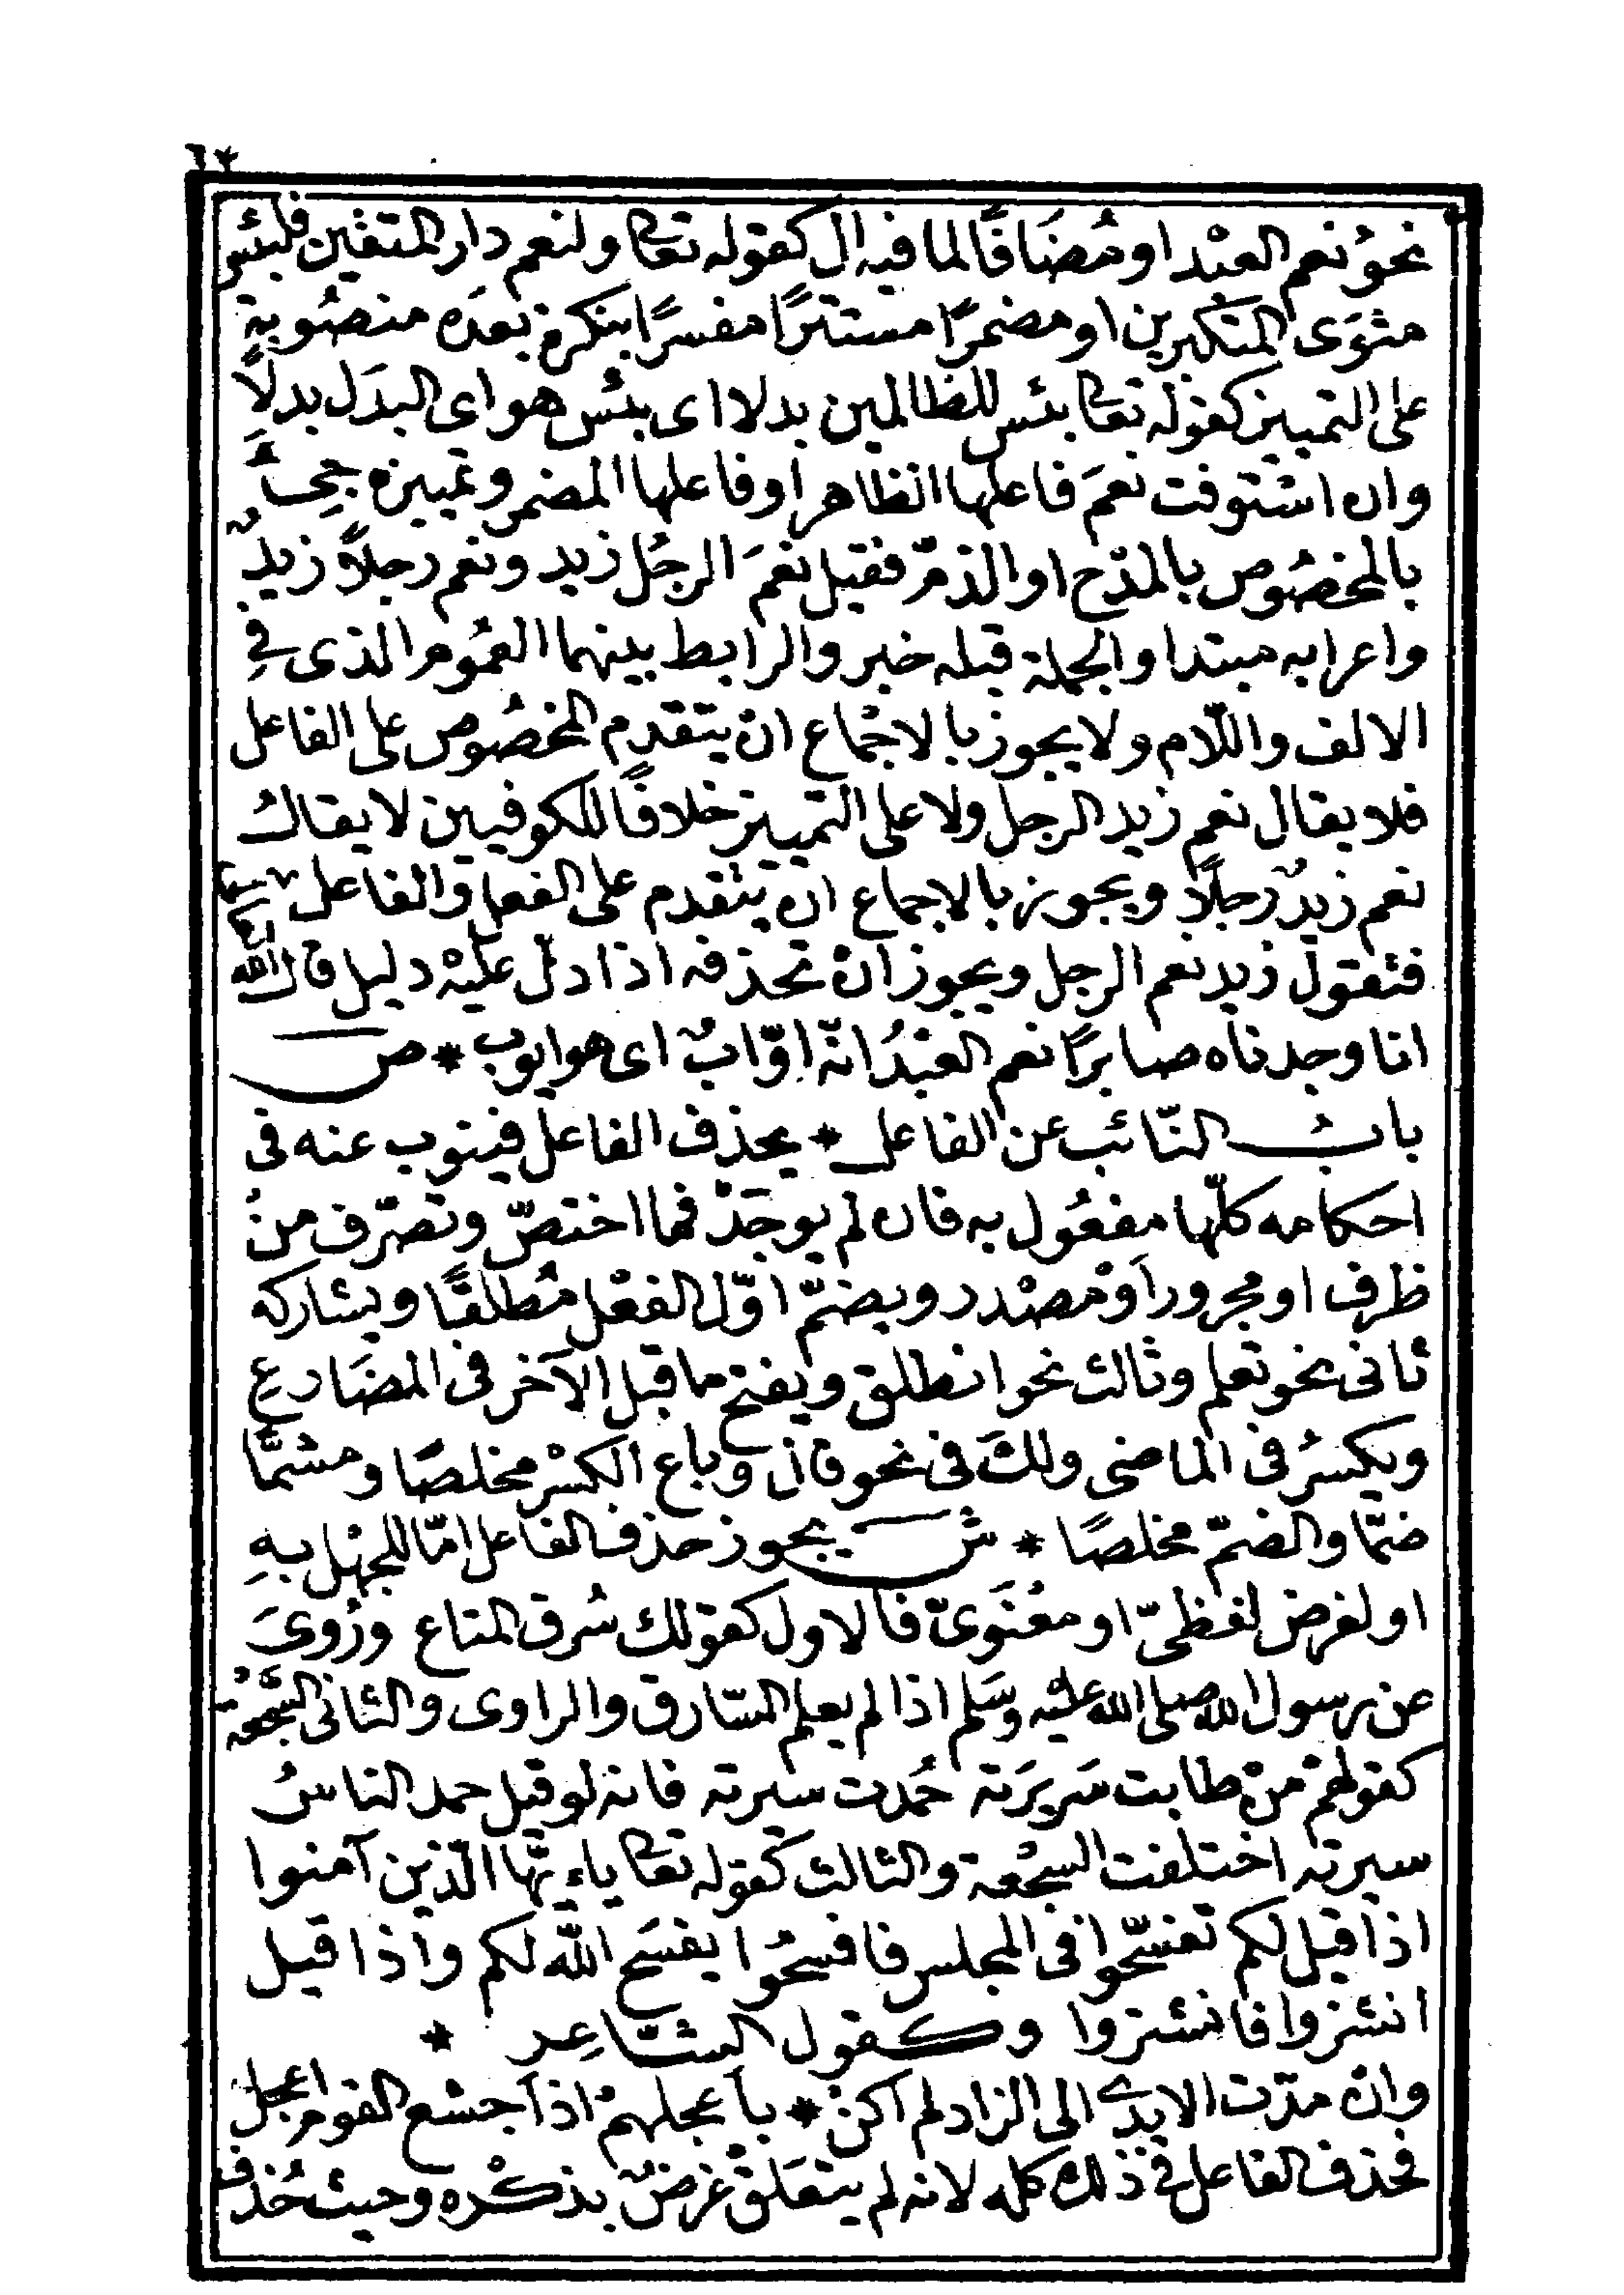 نحوُ نعم العبْد او مُضَافًا لما فيه ال كقوله تعالى ولنعم دار المتقين فلبئس
مثوَى المتكبرين او مضمرًا مستترًا مفسرًا بنكرة بعدَه منصُوبة
على التمييز كقوله تعالى بئس للظالمين بدلا اى بئس هو اى البدَل بدلًا
وان استوفت نعمَ فاعلها الظاهر او فاعلها المضمر وتمييزه جىءَ
بالمخصُوص بالمدْح او الذمّ فقيل نعْمَ الرجُل زيد ونعم رجلاً زيدٌ
واعرابه مبتدا والجملة قبله خبر والرابط بينهما العمُوم الذى فِى
الالف واللّام ولا يجوز بالاجْماع انْ يتقدم المخصُوص على الفاعل
فلا يقال نعم زيد الرجل ولا على التمييز خلافًا للكوفيين لا يقال
نعم زيدٌ رجلًا ويجوز بالاجماع ان يتقدم على الفعل والفاعل
فتقول زيد نعم الرجل ويجوز انْ تحذفه اذا دلّ عليْه دليل قال الله تعالى
انا وجدناه صابرًا نعم العبْدُ انّه اوّابٌ اى هو ايوب * ص
باب النّائب عن الفاعل * يحذف الفاعل فينوب عنه فى
احكامه كلّها مفعُول به فان لم يوجَدْ فما اختصّ وتصرّف منْ
ظرف او مجرور اَوْ مصْدر ويضمّ اوّل الفعْل مُطلقًا ويشاركه
ثانى نحو تعلم وثالث نحو انطلق ويفتح ما قبل الآخر فى المضَارعِ
ويكسرُ فى الماضى ولكَ فى نحو قال وباع الكسْر مخلصًا ومشمًّا
ضمّا والضمّ مخلصًا * ش يجوز حذف الفاعل امّا للجهْل بهِ
او لغرض لفظىّ او معْنَوىّ فالاول كقولك سُرق المتاع ورُوىَ
عن رسول الله صلى الله عليه وسَلم اذا لم يعلم السّارق والراوى والثانى السَّجْعة
كقولهمْ منْ طابت سَريرَته حُمدت سيرته فانه لو قيل حمد الناسُ
سيرته اختلفت السجْعة والثالث كقوله تعالى ياءيّها الّذين آمنوا
اذا قيل لكم تفسّحوا فى المجلس فافسحُوا يفسَح الله لكم واذا قيل
انشزوا فانشزوا وكقول الشّاعِر *
وانْ مدّت الايدى الى الزاد لم اكنْ * باَعجلهمْ اذ اَجشع القوم اعجل
فحذف الفاعل فى ذلك كله لانه لم يتعَلقْ غرضٌ بذكْره وحيث حُذف